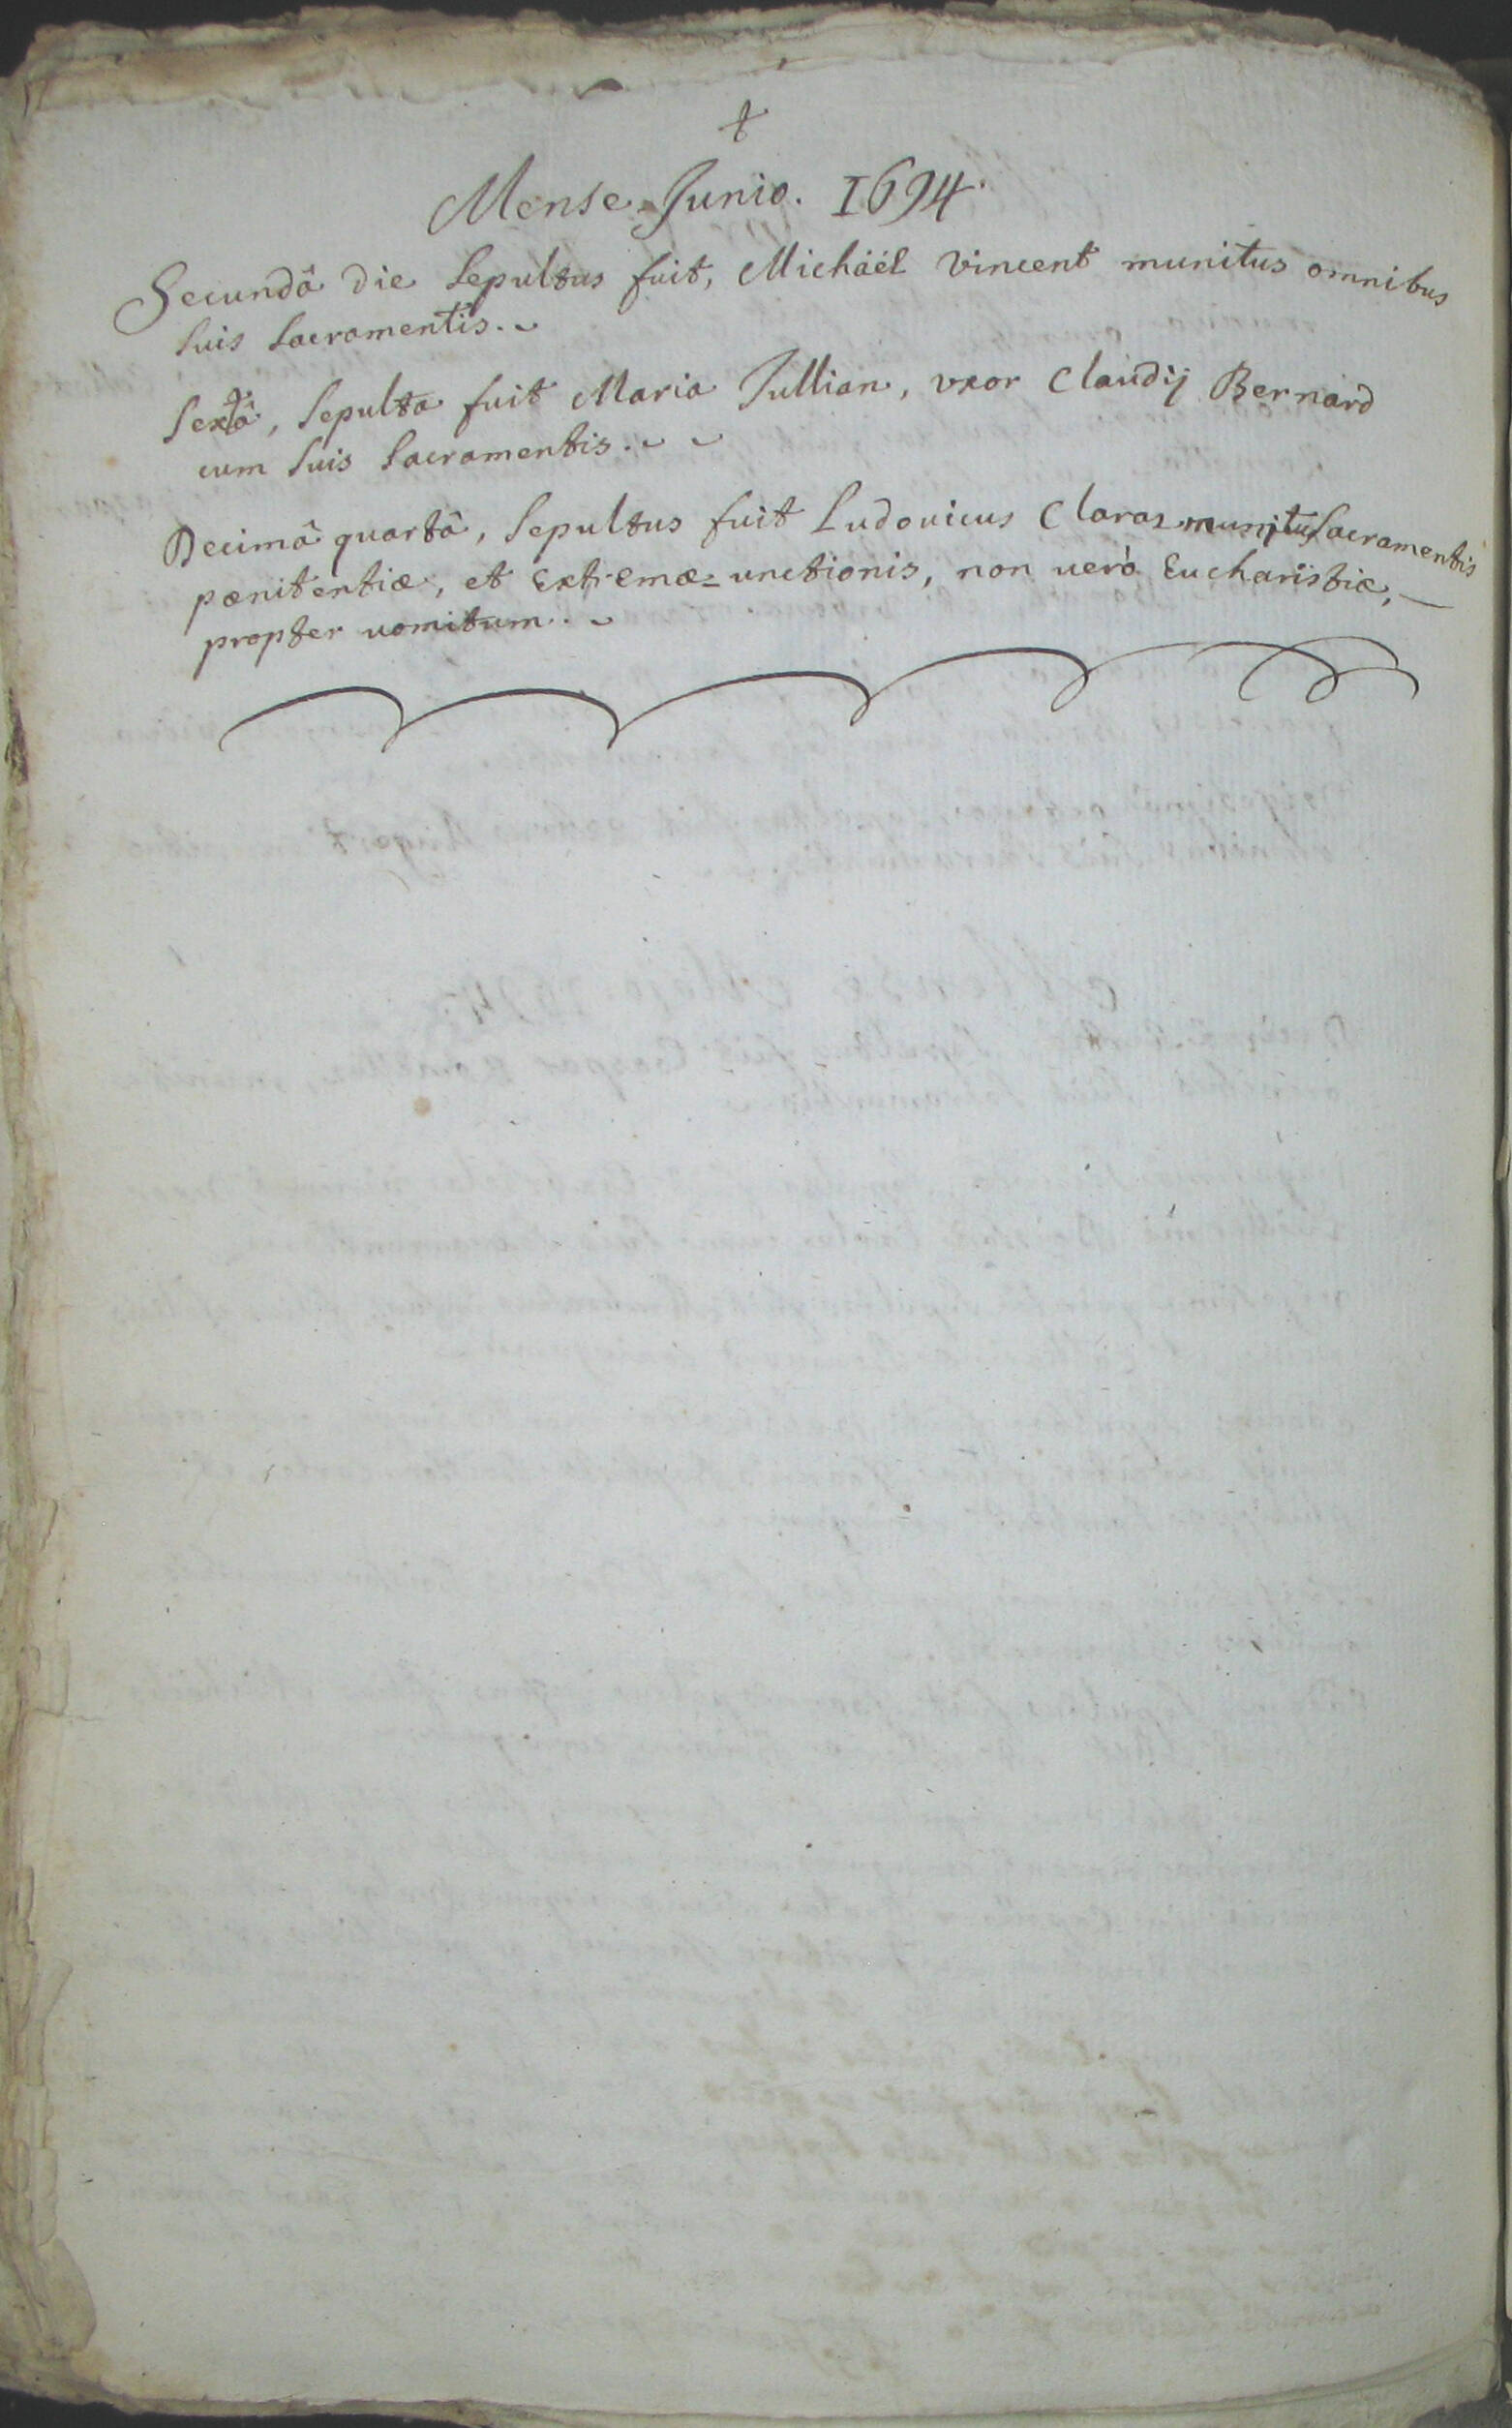 +
Mense Junio. 1694.
Secundâ die sepultus fuit, Michäël Vincent munitus omnibus
suis sacramentis.
Sextâ, sepulta fuit Maria Jullian, vxor Claudij Bernard
cum suis sacramentis.
Decimâ quartâ, sepultus fuit Ludouicus Claras munitus sacramentis
pœnitentiæ, et Extremæ=unctionis, non uerò Eucharistiæ,
propter uomitum.